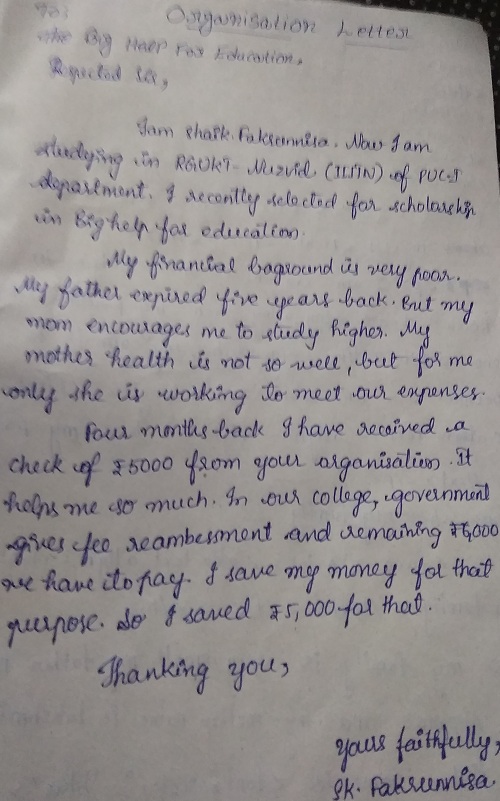 To:
Organisation Letter
The Big Help For Education,
Respected Sir,
I am Shaik. Faksunnisa. Now I am
studying in RGUKT- Nuzvid (IIIT N) of PUC-I
department. I recently selected for scholarship
in Big help for education.
My financial baground is very poor.
My father expired five years back. But my
mom encourages me to study higher. My
mother health is not so well, but for me
only she is working to meet our expenses.
Four months back I have received a
check of ₹5000 from your organisation. It
helps me so much. In our college, government
gives fee reambessment and remaining
we have to pay. I save my money for that
purpose. So I saved ₹5,000 for that.
Thanking you,
Yours faithfully,
SK. Faksunnisa.